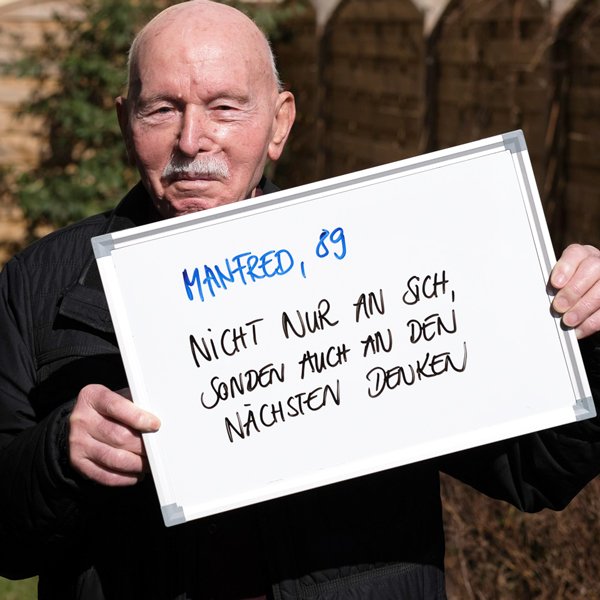 MANFRED, 89
NICHT NUR AN SICH,
SONDEN AUCH AN DEN
NÄCHSTEN DENKEN